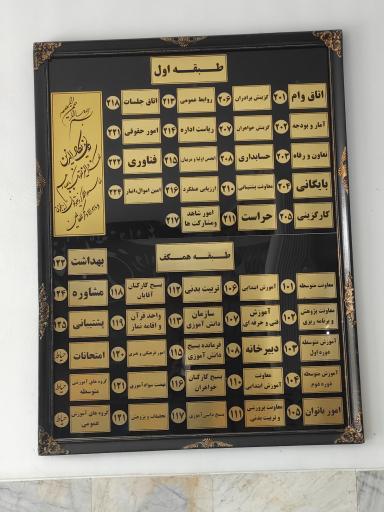 طبقه اول
اتاق وام ۲۰۱
گزینش برادران ۲۰۶
روابط عمومی ۲۱۳
اتاق جلسات ۲۱۸
آمار و بودجه ۲۰۲
گزینش خواهران ۲۰۷
ریاست اداره ۲۱۴
امور حقوقی ۲۲۱
تعاون و رفاه ۲۰۳
حسابداری ۲۰۸
انجمن اولیا و مربیان ۲۱۵
فناوری ۲۲۲
بایگانی ۲۰۴
معاونت پشتیبانی ۲۱۰
ارزیابی عملکرد ۲۱۶
امین اموال،انبار ۲۲۴
کارگزینی ۲۰۵
حراست ۲۱۱
امور شاهد
و مشارکت ها ۲۱۷
طبقه همکف
معاونت متوسطه ۱۰۱
آموزش ابتدایی ۱۰۶
تربیت بدنی ۱۱۲
بسیج کارکنان
آقایان ۱۱۸
بهداشت ۱۲۲
معاونت پژوهش
و برنامه ریزی ۱۰۲
آموزش
فنی و حرفه ای ۱۰۷
سازمان
دانش آموزی ۱۱۳
واحد قرآن
و اقامه نماز ۱۱۹
مشاوره ۱۲۴
آموزش متوسطه
دوره اول ۱۰۳
دبیرخانه ۱۰۸
فرمانده بسیج
دانش آموزی ۱۱۵
امور فرهنگی و هنری ۱۲۰
پشتیبانی ۱۲۵
آموزش متوسطه
دوره دوم ۱۰۴
معاونت
آموزش ابتدایی ۱۱۰
بسیج کارکنان
خواهران ۱۱۶
نهضت سوادآموزی ۱۲۱
امتحانات حیاط
امور بانوان ۱۰۵
معاونت پرورشی
و تربیت بدنی ۱۱۱
بسیج دانش آموزی ۱۱۷
تحقیقات و پژوهش ۱۲۱
گروه های آموزش
متوسطه حیاط
گروه های آموزش
عمومی حیاط